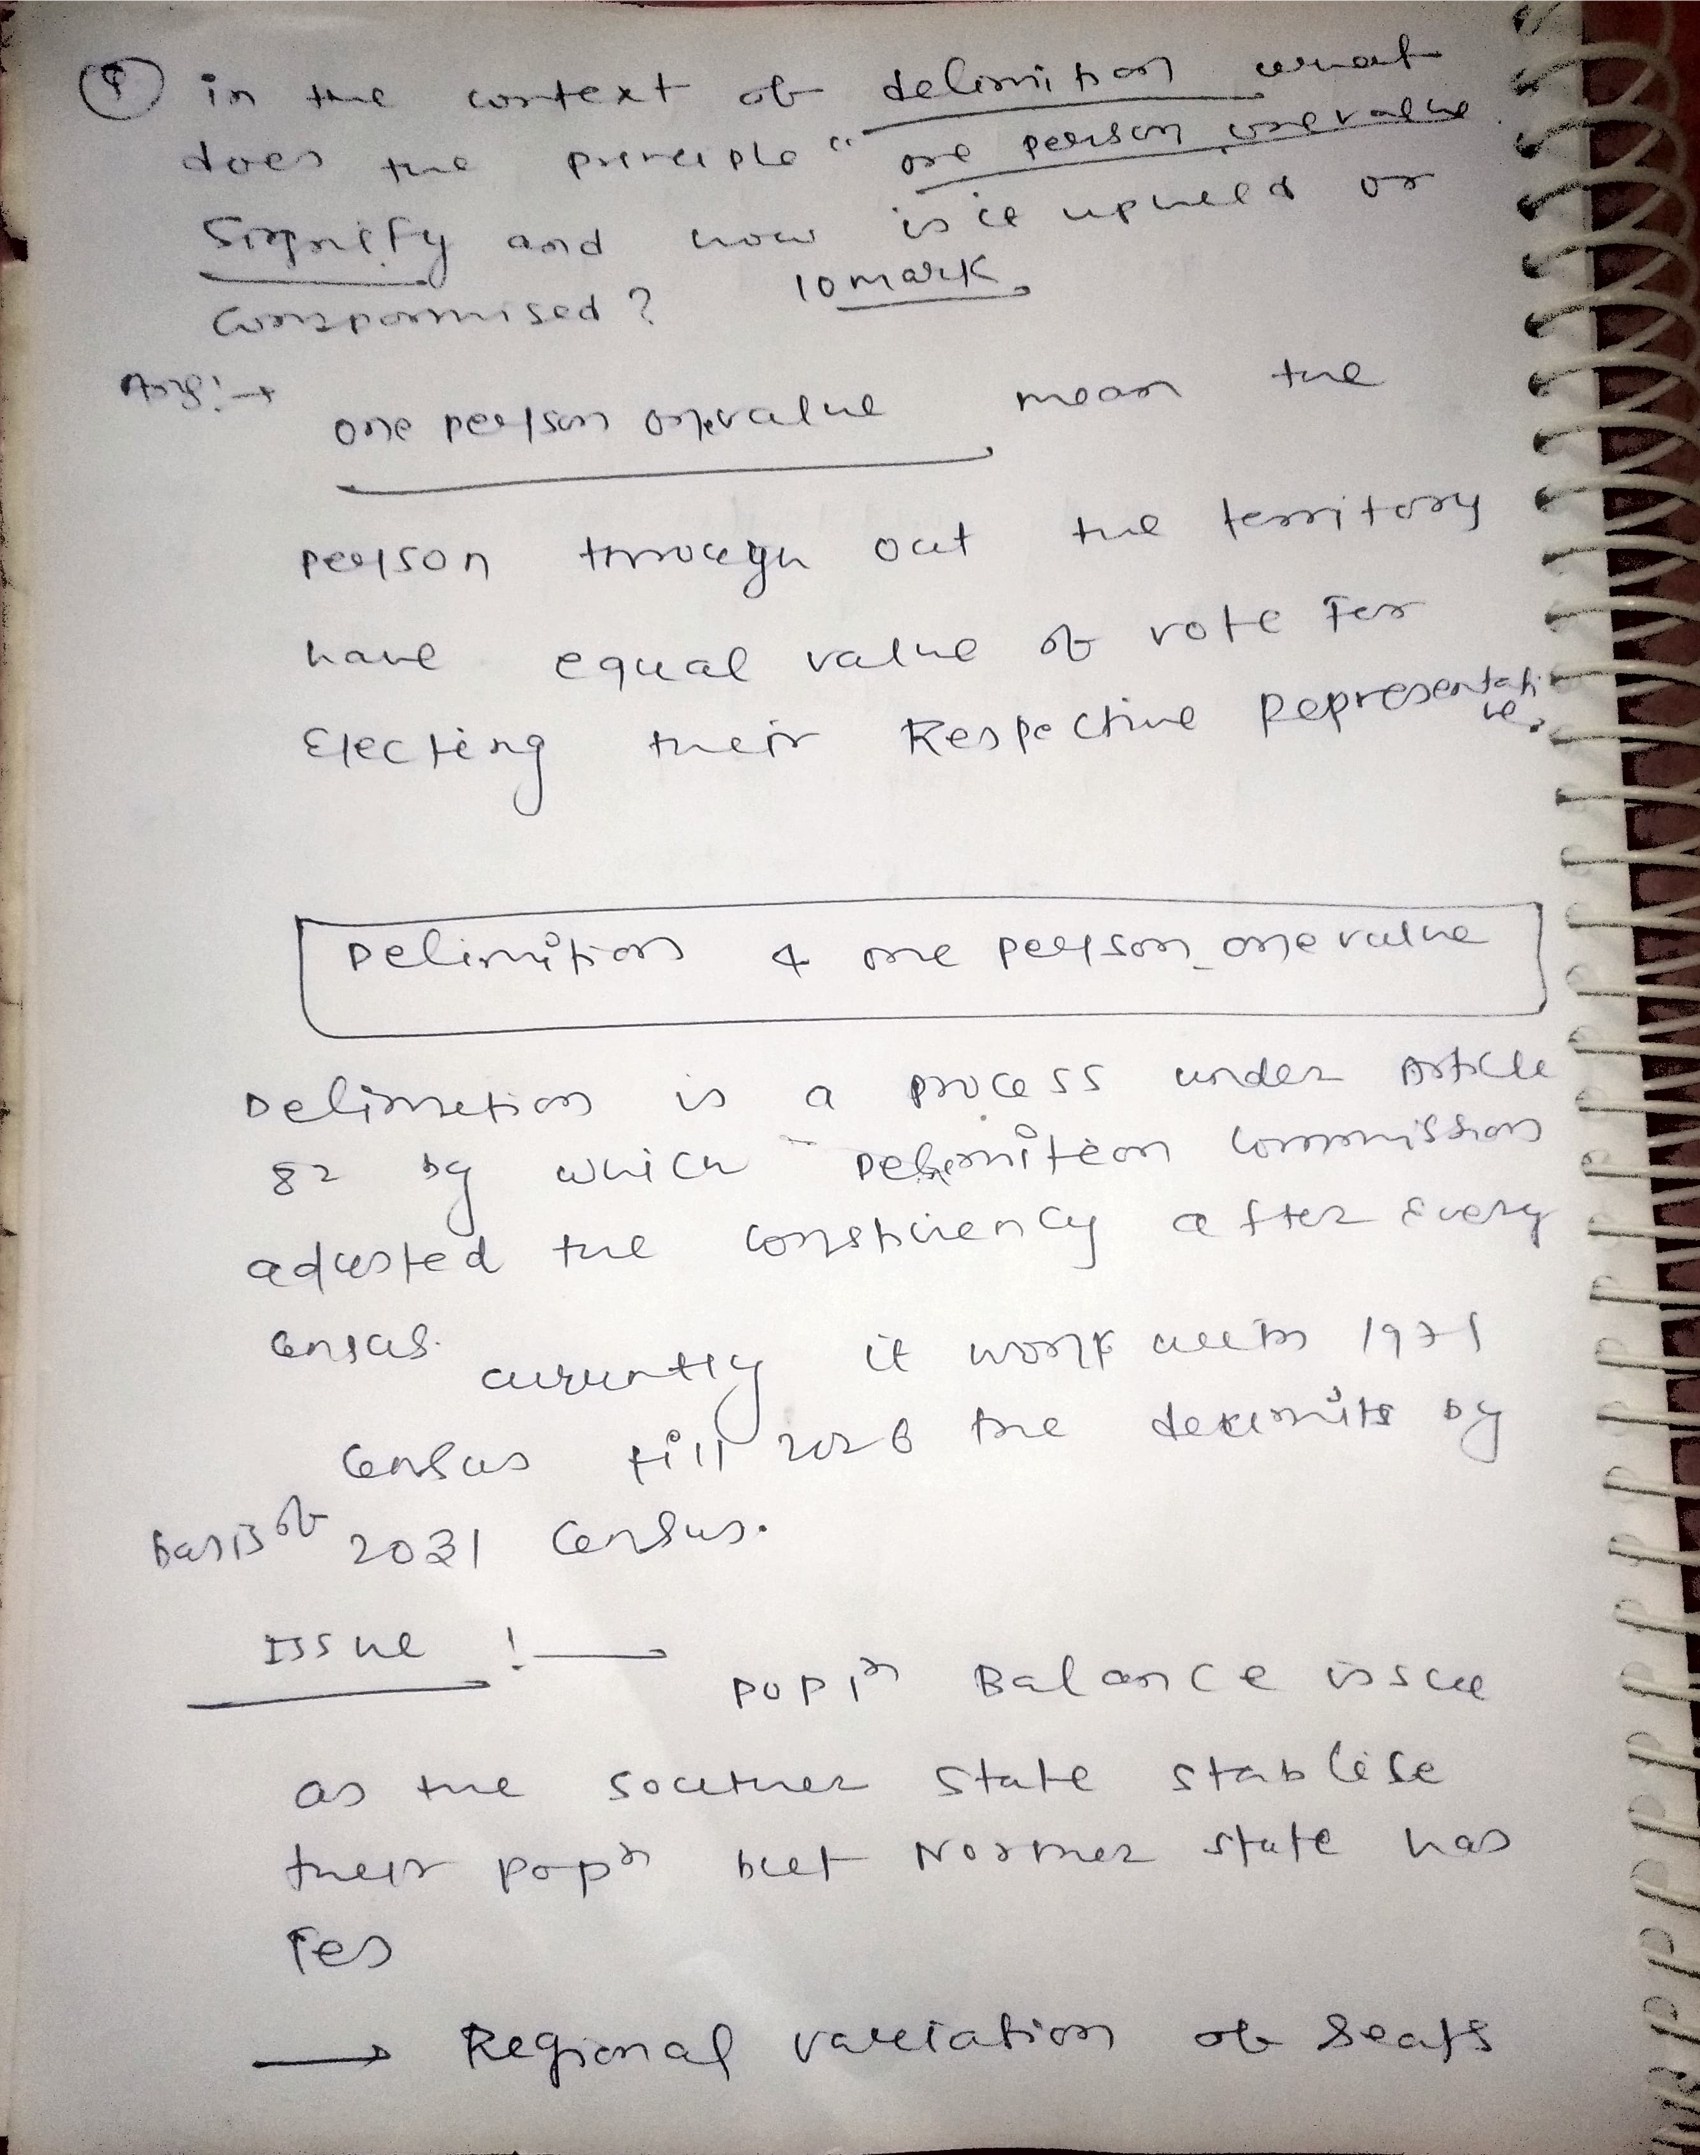 Q in the context of delimitation what
does the principle "one person one value
Signify and how is it upheld or
Compormised? 10 mark
Ans:→
one person one value mean the
person through out the territory
have equal value of vote for
Electing their Respective Representative.
Delimitation & one person one value
Delimetion is a process under Article
82 by which Delimition Commission
adjusted the constituency after Every
Census. currently it work with 1971
Census till 2026 the delimits by
basis of 2031 Census.
Issue :— Popln Balance issue
as the souther State stablise
their popn but Norther state has
Yes
→ Regional variation of Seats